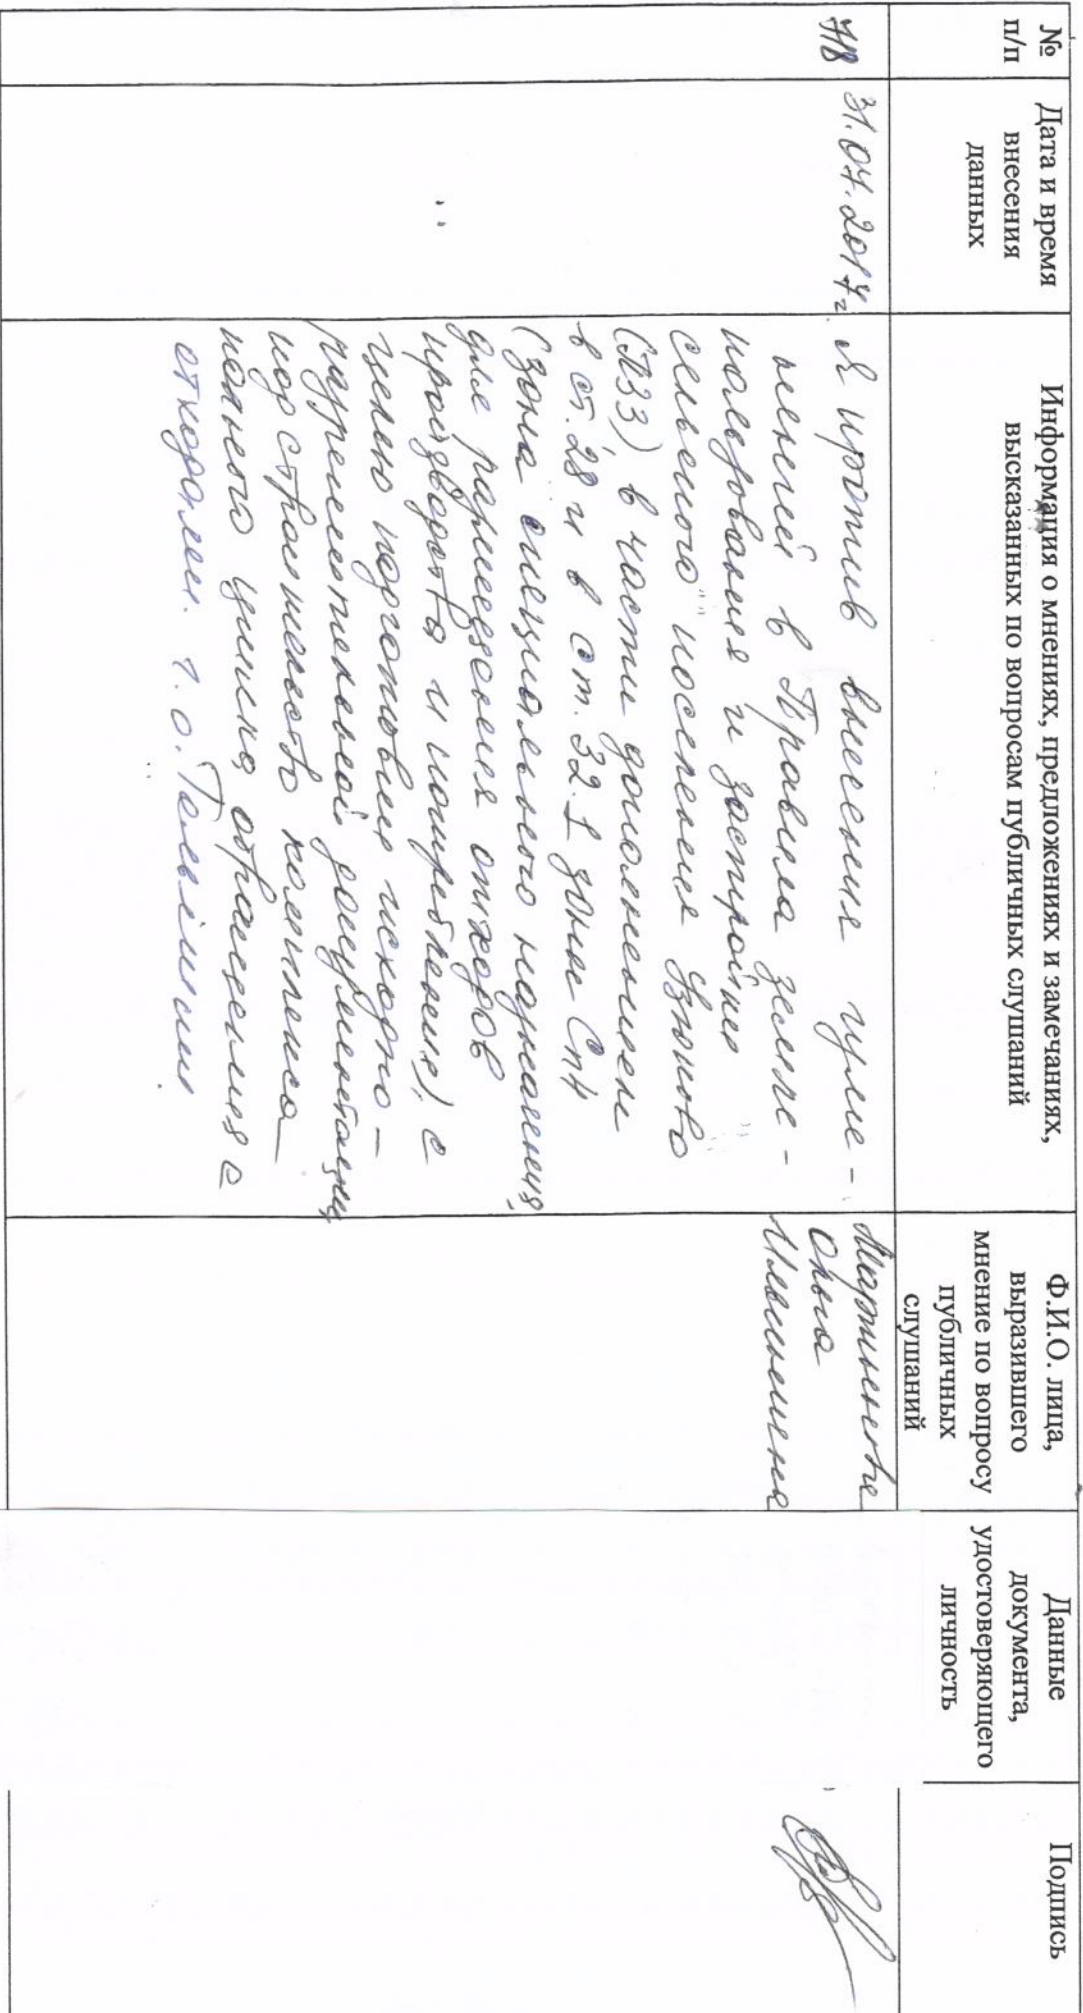 №
п/п
Дата и время
внесения
данных
Информация о мнениях, предложениях и замечаниях,
высказанных по вопросам публичных слушаний
Ф.И.О. лица,
выразившего
мнение по вопросу
публичных
слушаний
Данные
документа,
удостоверяющего
личность
Подпись
718
31.07.2017г.
Я против внесения изме-
нений в Правила земле-
пользования и застройки
сельского поселения
(ПЗЗ) в части дополнением
в ст. 28 и в ст. 32.1 зоны Сп4
(Зона специального назначения,
для размещения отходов
производства и потребления) с
целью подготовки исходно-
разрешительной документации
под строительство комплекса
полного цикла обращения с
отходами. г.о.
Ольга